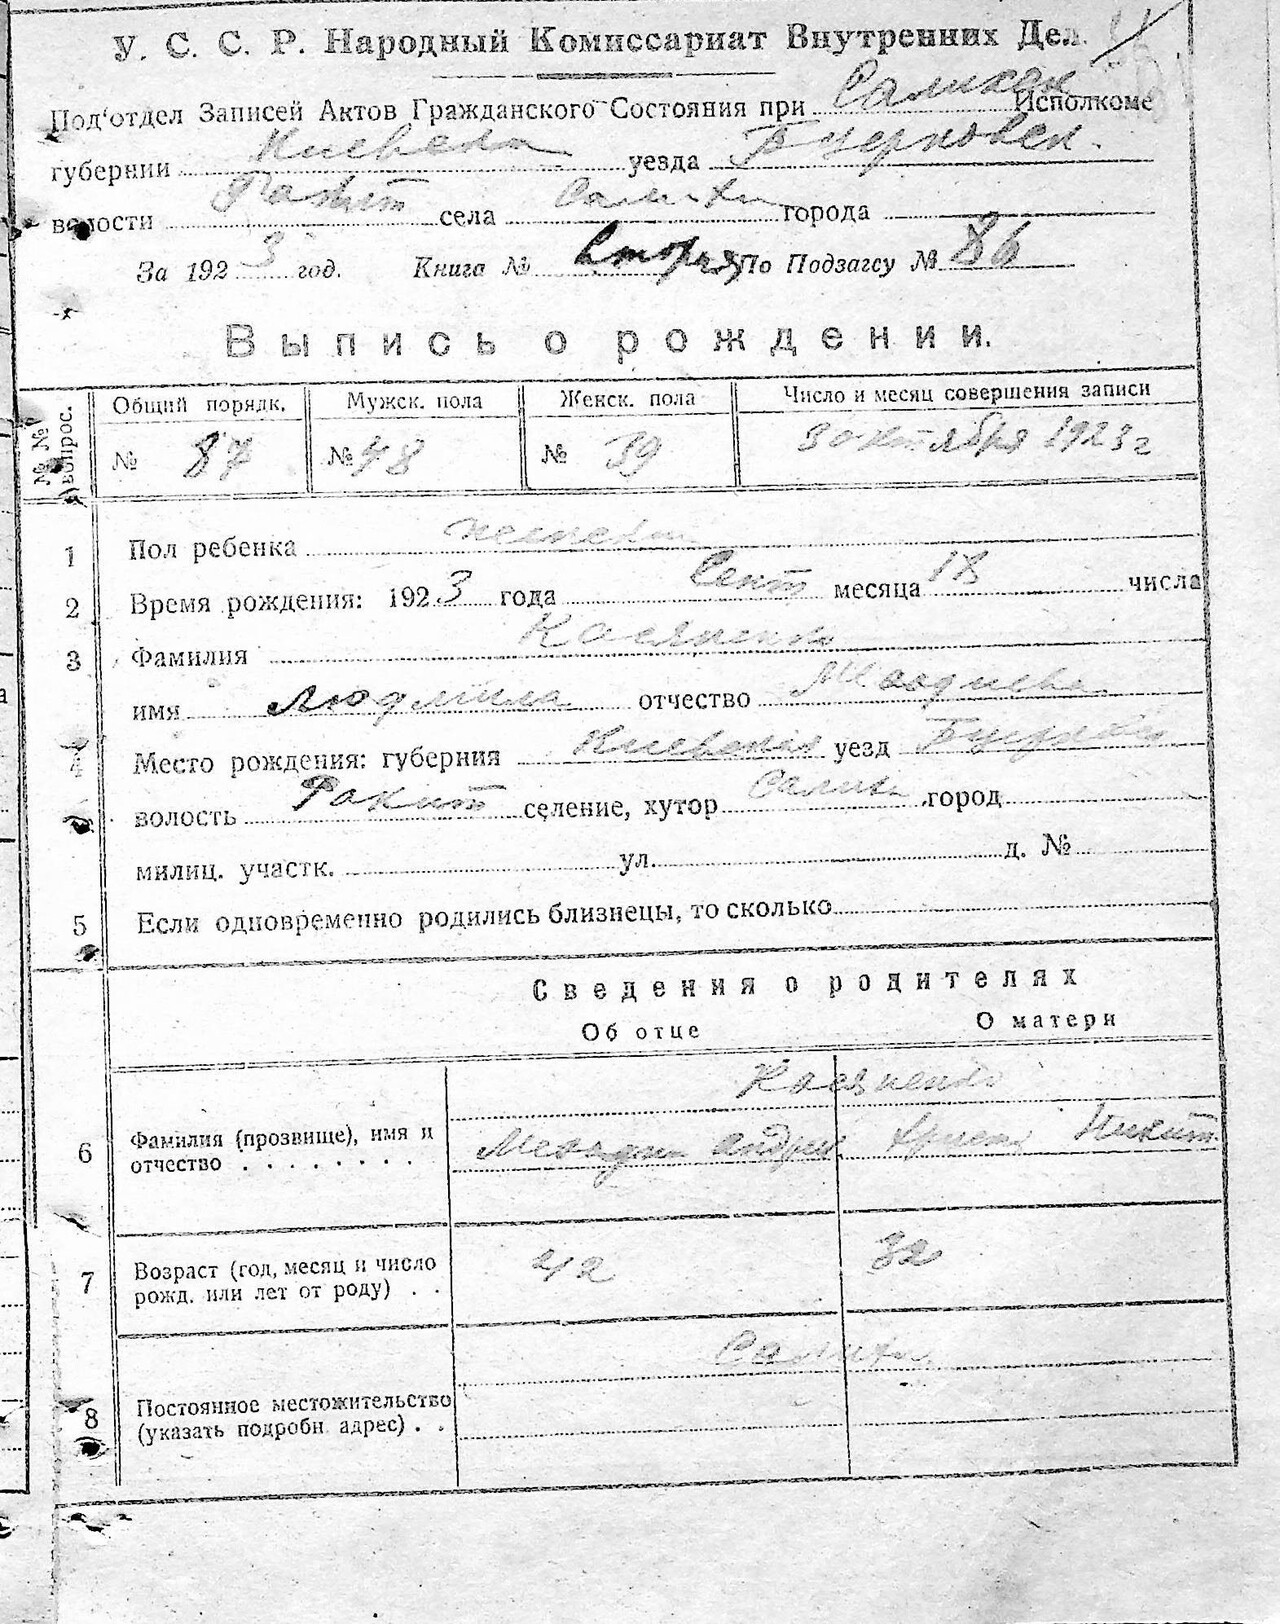 У. С. С. Р. Народный Комиссариат Внутренних Дел.
Под'отдел Записей Актов Гражданского Состояния при Исполкоме
губернии Киевск уезда
волости Ракит села города
За 1923 год. Книга № вторая По Подзагсу № 86
Выпись о рождении.
№ № вопрос. Общий порядк. Мужск. пола Женск. пола Число и месяц совершения записи
№ 87 № 48 № 39 3 октября 1923 г
1 Пол ребенка женский
2 Время рождения: 1923 года Сент месяца 18 числа
3 Фамилия Касяненко
имя Людмила отчество
4 Место рождения: губерния Киевская уезд
волость Ракит селение, хутор город
милиц. участк. ул. д. №
5 Если одновременно родились близнецы, то сколько
Сведения о родителях
Об отце О матери
Касяненко
6 Фамилия (прозвище), имя и
отчество Андри Никит.
7 Возраст (год, месяц и число 42 32
рожд. или лет от роду)
8 Постоянное местожительство
(указать подробн адрес)